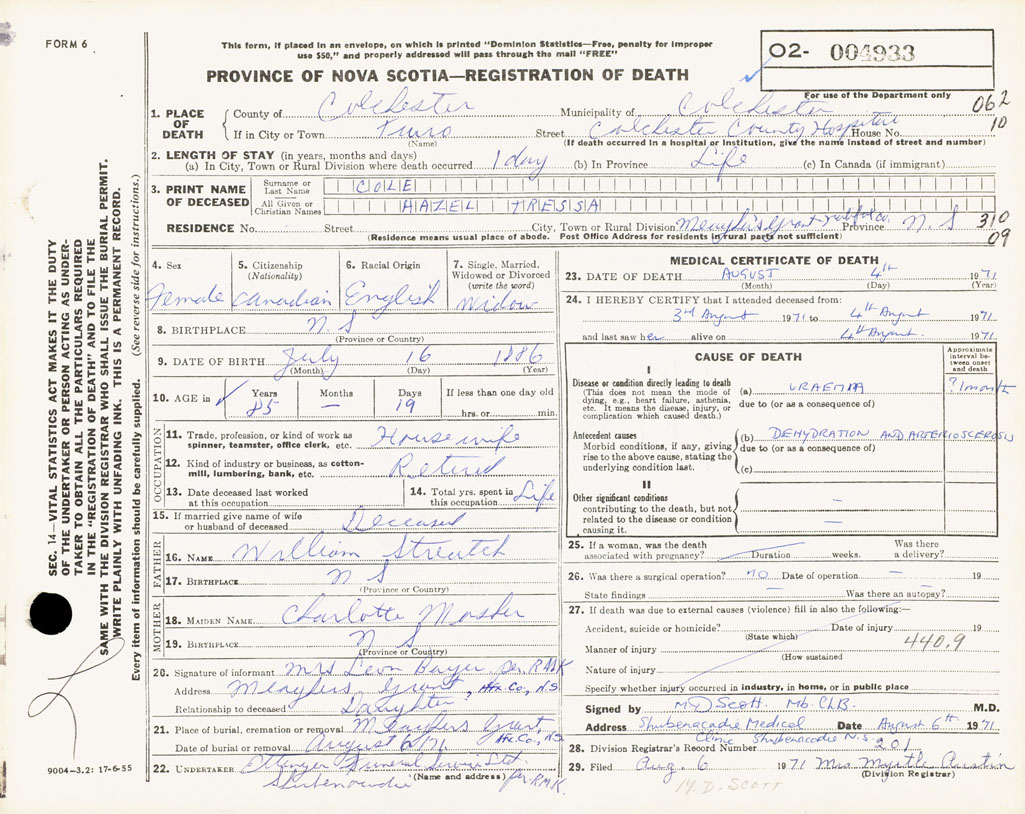 FORM 6
This form, if placed in an envelope, on which is printed "Dominion Statistics—Free, penalty for improper
use $50," and properly addressed will pass through the mail "FREE"
PROVINCE OF NOVA SCOTIA—REGISTRATION OF DEATH
02- 004933
For use of the Department only
062
10
1. PLACE OF DEATH
County of Colchester Municipality of Colchester
If in City or Town Truro Street Colchester County Hospital House No.
(Name) (If death occurred in a hospital or institution, give the name instead of street and number)
2. LENGTH OF STAY (in years, months and days)
(a) In City, Town or Rural Division where death occurred 1 day (b) In Province Life (c) In Canada (if immigrant)
3. PRINT NAME OF DECEASED
Surname or Last Name COLE
All Given or Christian Names HAZEL TRESSA
RESIDENCE No. Street City, Town or Rural Division Grant Co. Province N.S 310
(Residence means usual place of abode. Post Office Address for residents in rural parts not sufficient) 09
4. Sex Female
5. Citizenship (Nationality) Canadian
6. Racial Origin English
7. Single, Married, Widowed or Divorced (write the word) Widow
8. BIRTHPLACE N.S
(Province or Country)
9. DATE OF BIRTH July 16 1886
(Month) (Day) (Year)
10. AGE in Years 85 Months — Days 19 If less than one day old
hrs. or min.
OCCUPATION
11. Trade, profession, or kind of work as
spinner, teamster, office clerk, etc. Housewife
12. Kind of industry or business, as cotton-
mill, lumbering, bank, etc. Retired
13. Date deceased last worked
at this occupation
14. Total yrs. spent in
this occupation Life
15. If married give name of wife
or husband of deceased Deceased
FATHER
16. NAME William Streatch
17. BIRTHPLACE N S
(Province or Country)
MOTHER
18. MAIDEN NAME Charlotte Mosher
19. BIRTHPLACE N S
(Province or Country)
20. Signature of informant Mrs Leon Bayer per. RMK
Address Grant, Hx. Co., N.S.
Relationship to deceased Daughter
21. Place of burial, cremation or removal Grant,
Hx. Co., N.S
Date of burial or removal August 6/71
22. UNDERTAKER Ettinger Funeral Service Ltd.
Shubenacadie (Name and address) per R.M.K.
MEDICAL CERTIFICATE OF DEATH
23. DATE OF DEATH AUGUST 4th 1971
(Month) (Day) (Year)
24. I HEREBY CERTIFY that I attended deceased from:
3rd August 1971 to 4th August 1971
and last saw her alive on 4th August 1971
CAUSE OF DEATH
Approximate interval be-
tween onset
and death
I
Disease or condition directly leading to death
(This does not mean the mode of
dying, e.g., heart failure, asthenia,
etc. It means the disease, injury, or
complication which caused death.)
(a) URAEMIA ? 1 month
due to (or as a consequence of)
Antecedent causes
Morbid conditions, if any, giving
rise to the above cause, stating the
underlying condition last.
(b) DEHYDRATION AND ARTERIOSCLEROSIS
due to (or as a consequence of)
(c)
II
Other significant conditions
contributing to the death, but not
related to the disease or condition
causing it.
—
—
25. If a woman, was the death
associated with pregnancy? Duration weeks. Was there
a delivery?
26. Was there a surgical operation? no Date of operation — 19
State findings — Was there an autopsy? —
27. If death was due to external causes (violence) fill in also the following:—
Accident, suicide or homicide? Date of injury 19
(State which)
Manner of injury 440.9
(How sustained
Nature of injury
Specify whether injury occurred in industry, in home, or in public place
Signed by MD Scott Mb. ChB. M.D.
Address Shubenacadie Medical Date August 6th 1971.
Clinic Shubenacadie N.S.
28. Division Registrar's Record Number 201
29. Filed Aug. 6 1971 Mrs Myrtle Austin
(Division Registrar)
M. D. Scott
SEC. 14—VITAL STATISTICS ACT MAKES IT THE DUTY
OF THE UNDERTAKER OR PERSON ACTING AS UNDER-
TAKER TO OBTAIN ALL THE PARTICULARS REQUIRED
IN THE "REGISTRATION OF DEATH" AND TO FILE THE
SAME WITH THE DIVISION REGISTRAR WHO SHALL ISSUE THE BURIAL PERMIT.
WRITE PLAINLY WITH UNFADING INK. THIS IS A PERMANENT RECORD.
Every item of information should be carefully supplied. (See reverse side for instructions.)
9004—3.2: 17-6-55